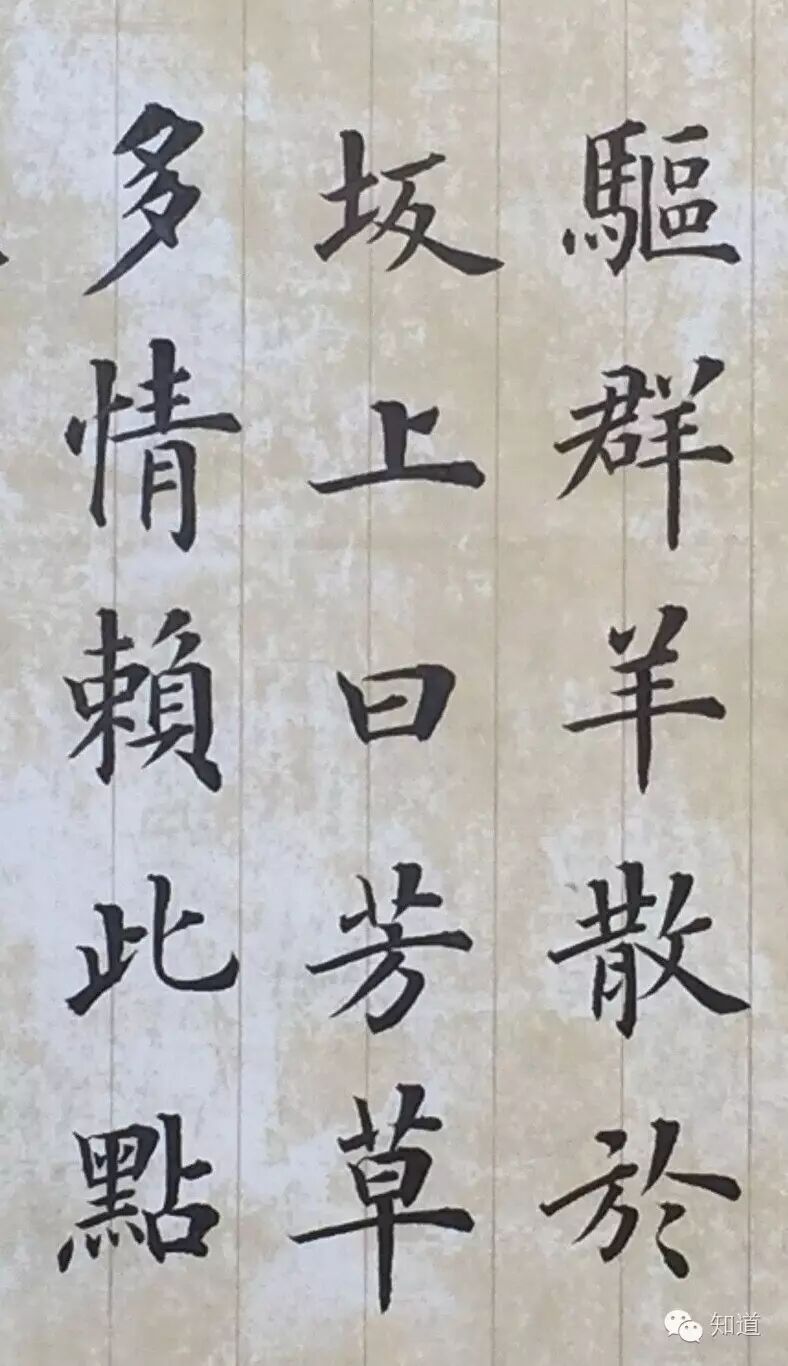 驅群羊散於
坂上曰芳草
多情賴此點
知道